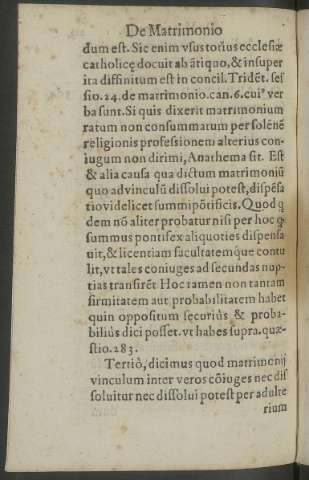 De Matrimonio
dum est. Sic enim vsus totius ecclesiæ
catholicę docuit ab ãtiquo, & insuper
ita diffinitum est in concil. Tridẽt. ses
sio. 24. de matrimonio. can. 6. cuiꝰ ver
ba sunt. Si quis dixerit matrimonium
ratum non consummatum per solẽnẽ
religionis professionem alterius con-
iugum non dirimi, Anathema sit. Est
& alia causa qua dictum matrimoniũ
quo ad vinculũ dissolui potest, dispẽsa
tio videlicet summi põtificis. Quod q
dem nõ aliter probatur nisi per hoc ꝙ
summus pontifex aliquoties dispensa
uit, & licentiam facultatemque contu
lit, vt tales coniuges ad secundas nup-
tias transirẽt Hoc tamen non tantam
firmitatem aut probabilitatem habet
quin oppositum securiùs & proba-
biliùs dici posset. vt habes supra. quæ-
stio. 283.
Tertiò, dicimus quod matrimonij
vinculum inter veros cõiuges nec dis
soluitur nec dissolui potest per adulte
rium